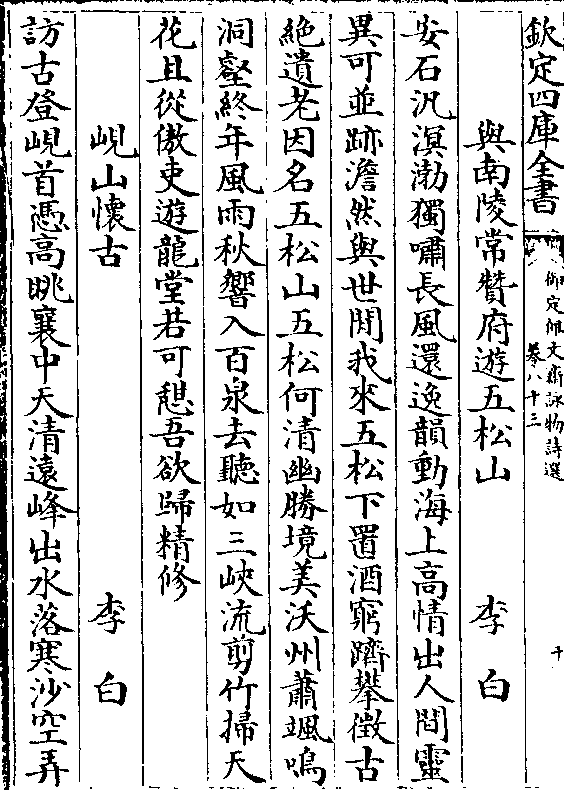 欽定四庫全書
御定佩文齋詠物詩選
卷八十三
十
與南陵常贊府遊五松山
李白
安石汎溟渤獨嘯長風還逸韻動海上高情出人間靈
異可並跡澹然與世閒我來五松下置酒窮躋攀徵古
絶遺老因名五松山五松何清幽勝境美沃州蕭颯鳴
洞壑終年風雨秋響入百泉去聽如三峽流剪竹掃天
花且從傲吏遊龍堂若可憩吾欲歸精修
峴山懷古
李白
訪古登峴首憑高眺襄中天清遠峰出水落寒沙空弄